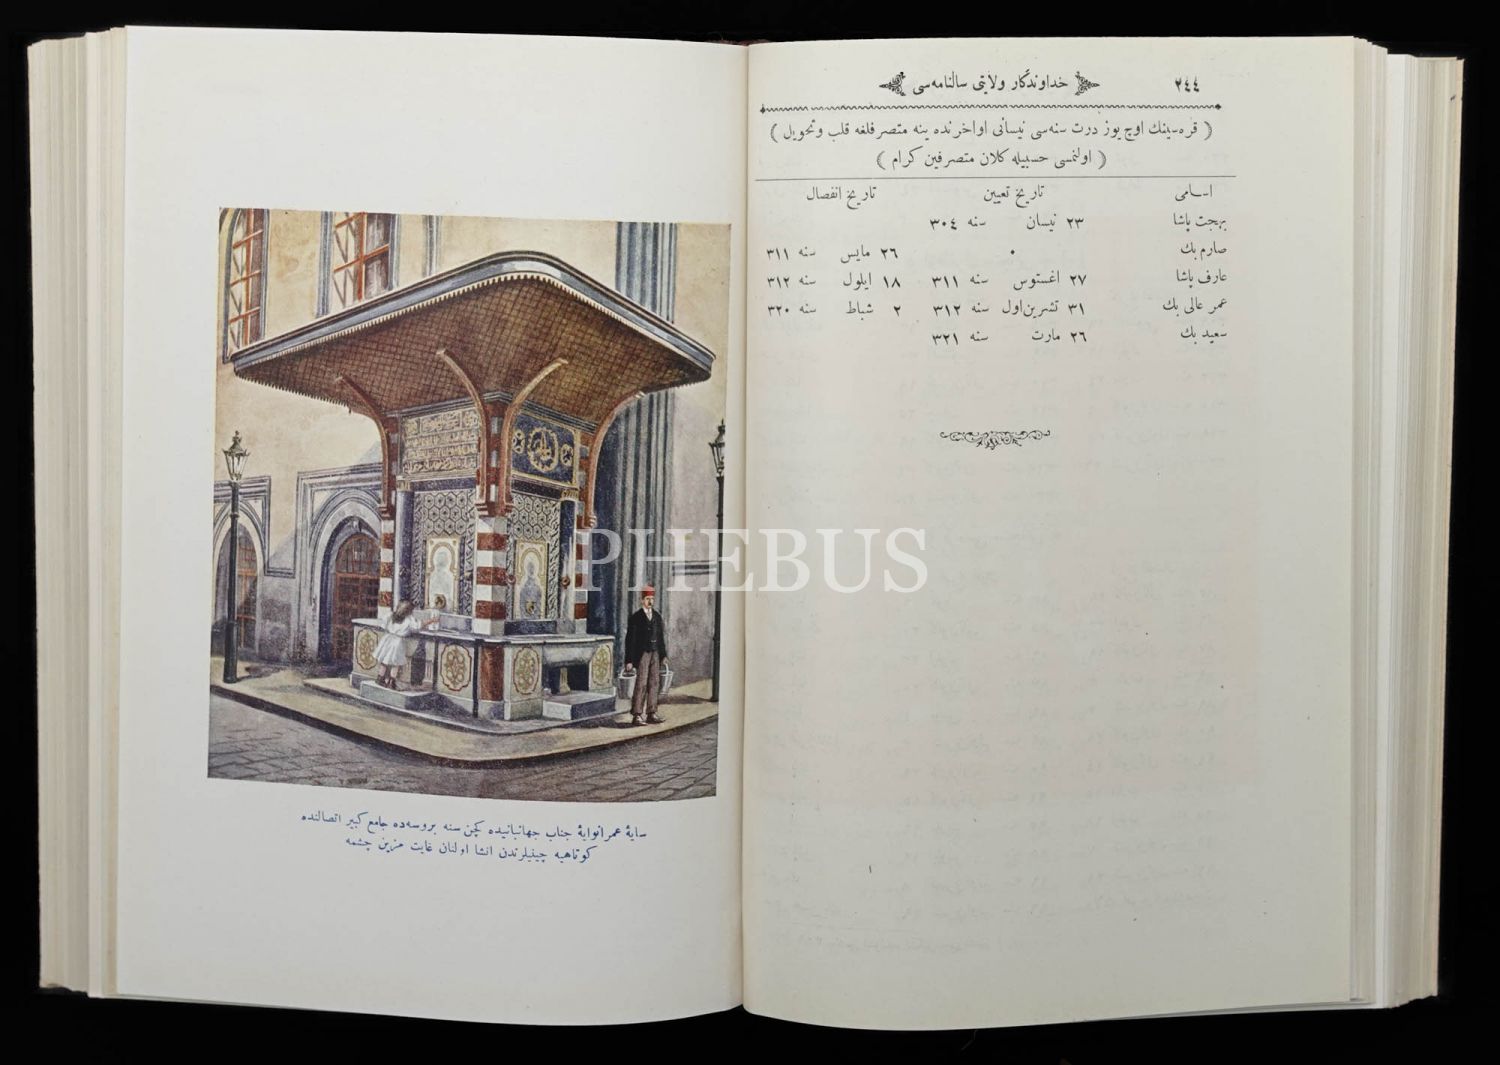 ٢٤٤
خداوندكار ولایتی سالنامه‌سی
( قره‌سینك اوچ یوز درت سنه‌سی نیسانی اواخرنده ینه متصرفلغه قلب وتحویل )
( اولنمسی حسبیله كلان متصرفین كرام )
اسامی تاریخ تعیین تاریخ انفصال
بهجت پاشا ٢٣ نیسان سنه ٣٠٤
صارم بك ٠ ٢٦ مایس سنه ٣١١
عارف پاشا ٢٧ اغستوس سنه ٣١١ ١٨ ایلول سنه ٣١٢
عمر عالی بك ٣١ تشرین‌اول سنه ٣١٢ ٢ شباط سنه ٣٢٠
سعید بك ٢٦ مارت سنه ٣٢١
سایۀ عمرانوایۀ جناب جهانبانیده كچن سنه بروسه‌ده جامع كبیر اتصالنده
كوتاهیه چینیلرندن انشا اولنان غایت مزین چشمه
PHEBUS